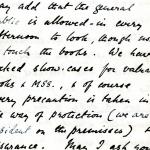 may add that the general
public is allowed in every
afternoon to look, though not
touch the books. We have
locked show-cases for valuable
books & MSS., & of course
every precaution is taken in
the way of protection (we are
resident on the premises) &
insurance. May I ask you